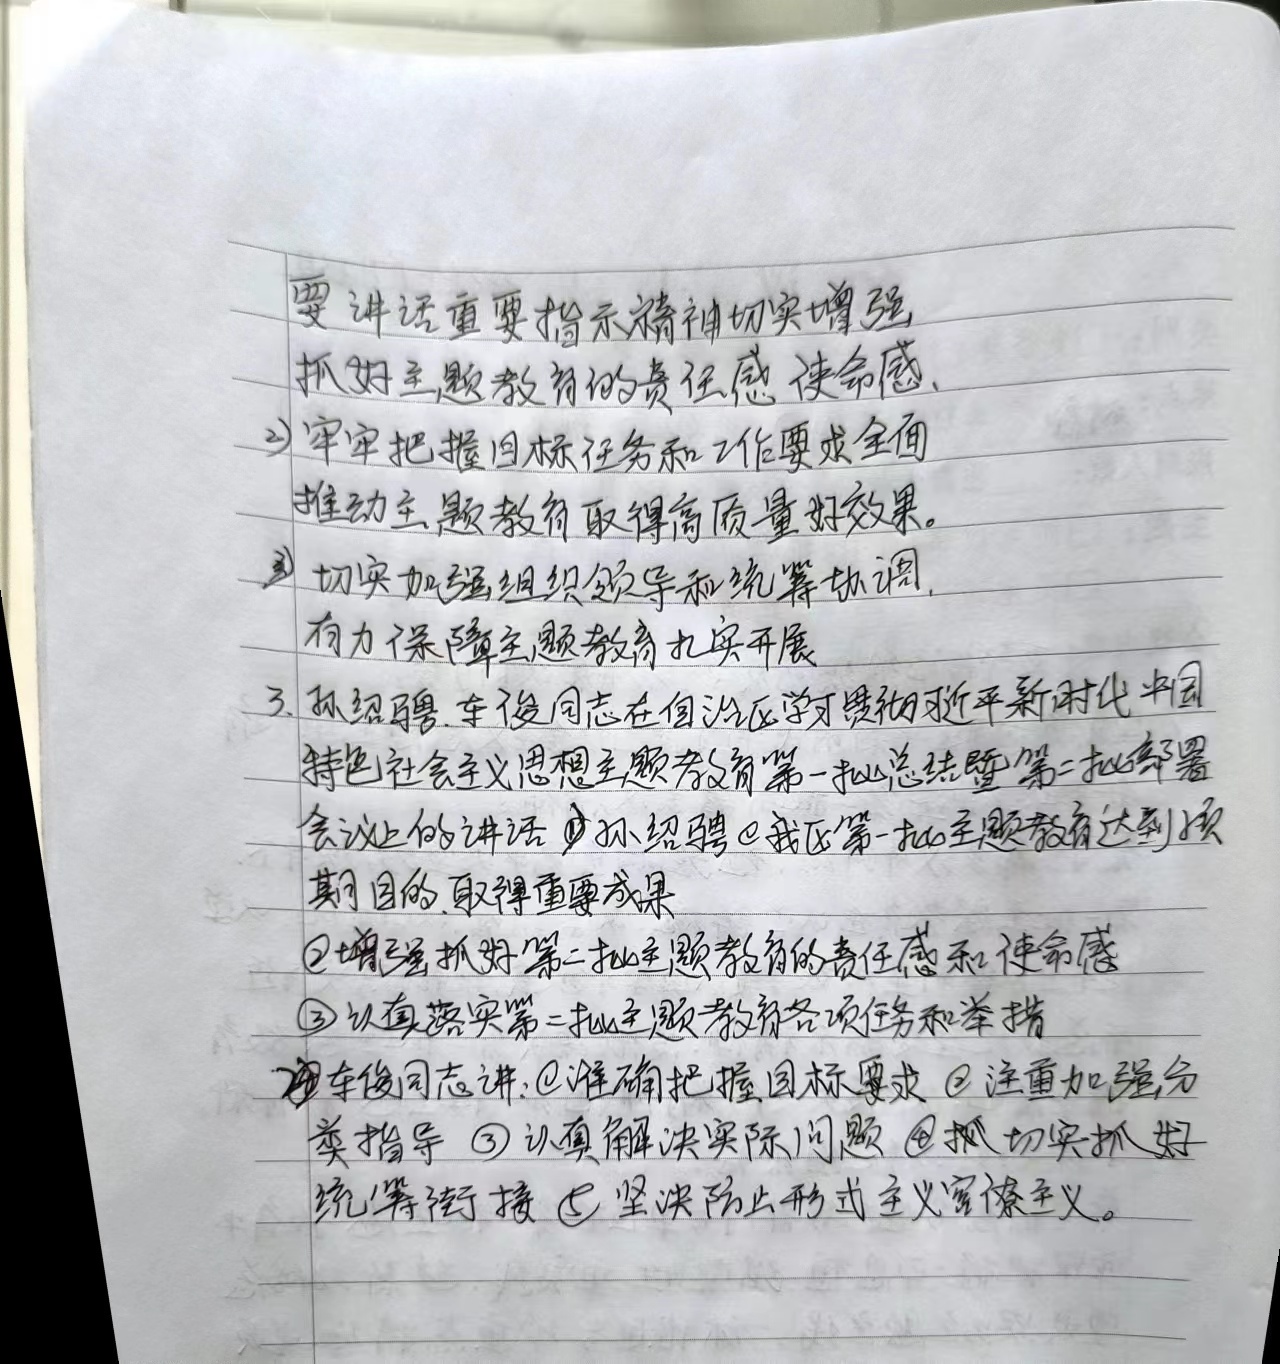 要讲话重要指示精神切实增强
抓好主题教育的责任感 使命感、
2) 牢牢把握目标任务和工作要求全面
推动主题教育取得高质量好效果。
3) 切实加强组织领导和统筹协调,
有力保障主题教育扎实开展
3. 孙绍骋、车俊同志在自治区学习贯彻习近平新时代中国
特色社会主义思想主题教育第一批总结暨第二批部署
会议上的讲话 1) 孙绍骋 ①我区第一批主题教育达到预
期目的、取得重要成果
②增强抓好第二批主题教育的责任感和使命感
③认真落实第二批主题教育各项任务和举措
车俊同志讲:①准确把握目标要求 ②注重加强分
类指导 ③认真解决实际问题 ④抓切实抓好
统筹衔接 ⑤坚决防止形式主义官僚主义。